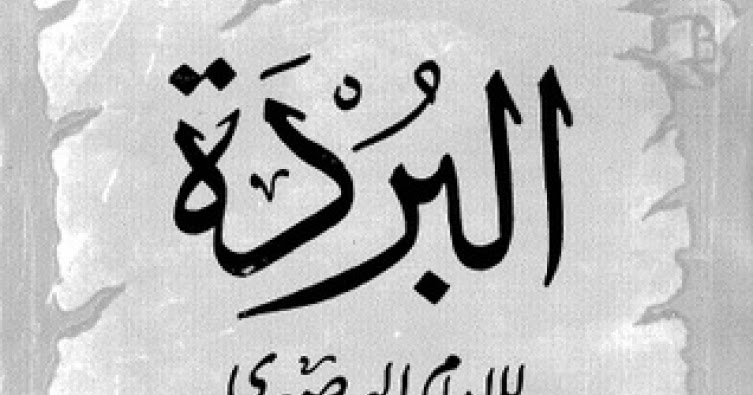 البُرْدَة
للإمام البوصيري